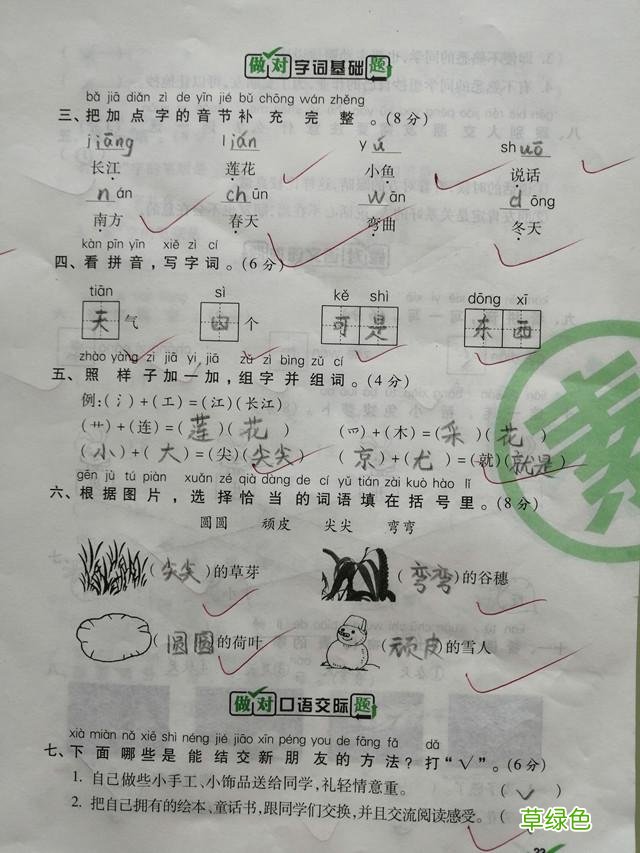 做对字词基础题
bǎ jiā diǎn zì de yīn jié bǔ chōng wán zhěng
三、把加点字的音节补充完整。(8分)
jiāng lián yú shuō
长江 莲花 小鱼 说话
nán chūn wān dōng
南方 春天 弯曲 冬天
kàn pīn yīn xiě zì cí
四、看拼音,写字词。(6分)
tiān sì kě shì dōng xī
天气 四个 可是 东西
zhào yàng zi jiā yì jiā zǔ zì bìng zǔ cí
五、照样子加一加,组字并组词。(4分)
例:(氵)+(工)=(江)(长江)
(艹)+(连)=(莲)(花) (爫)+(木)=(采)(花)
(小)+(大)=(尖)(尖尖) (京)+(尤)=(就)(就是)
gēn jù tú piàn xuǎn zé qià dàng de cí yǔ tián zài kuò hào lǐ
六、根据图片,选择恰当的词语填在括号里。(8分)
圆圆 顽皮 尖尖 弯弯
(尖尖)的草芽 (弯弯)的谷穗
(圆圆的荷叶 (顽皮)的雪人
做对口语交际题
xià miàn nǎ xiē shì néng jié jiāo xīn péng you de fāng fǎ dǎ
七、下面哪些是能结交新朋友的方法?打“√”。(6分)
1. 自己做些小手工、小饰品送给同学,礼轻情意重。 (√)
2. 把自己拥有的绘本、童话书,跟同学们交换,并且交流阅读感受。(
草绿色